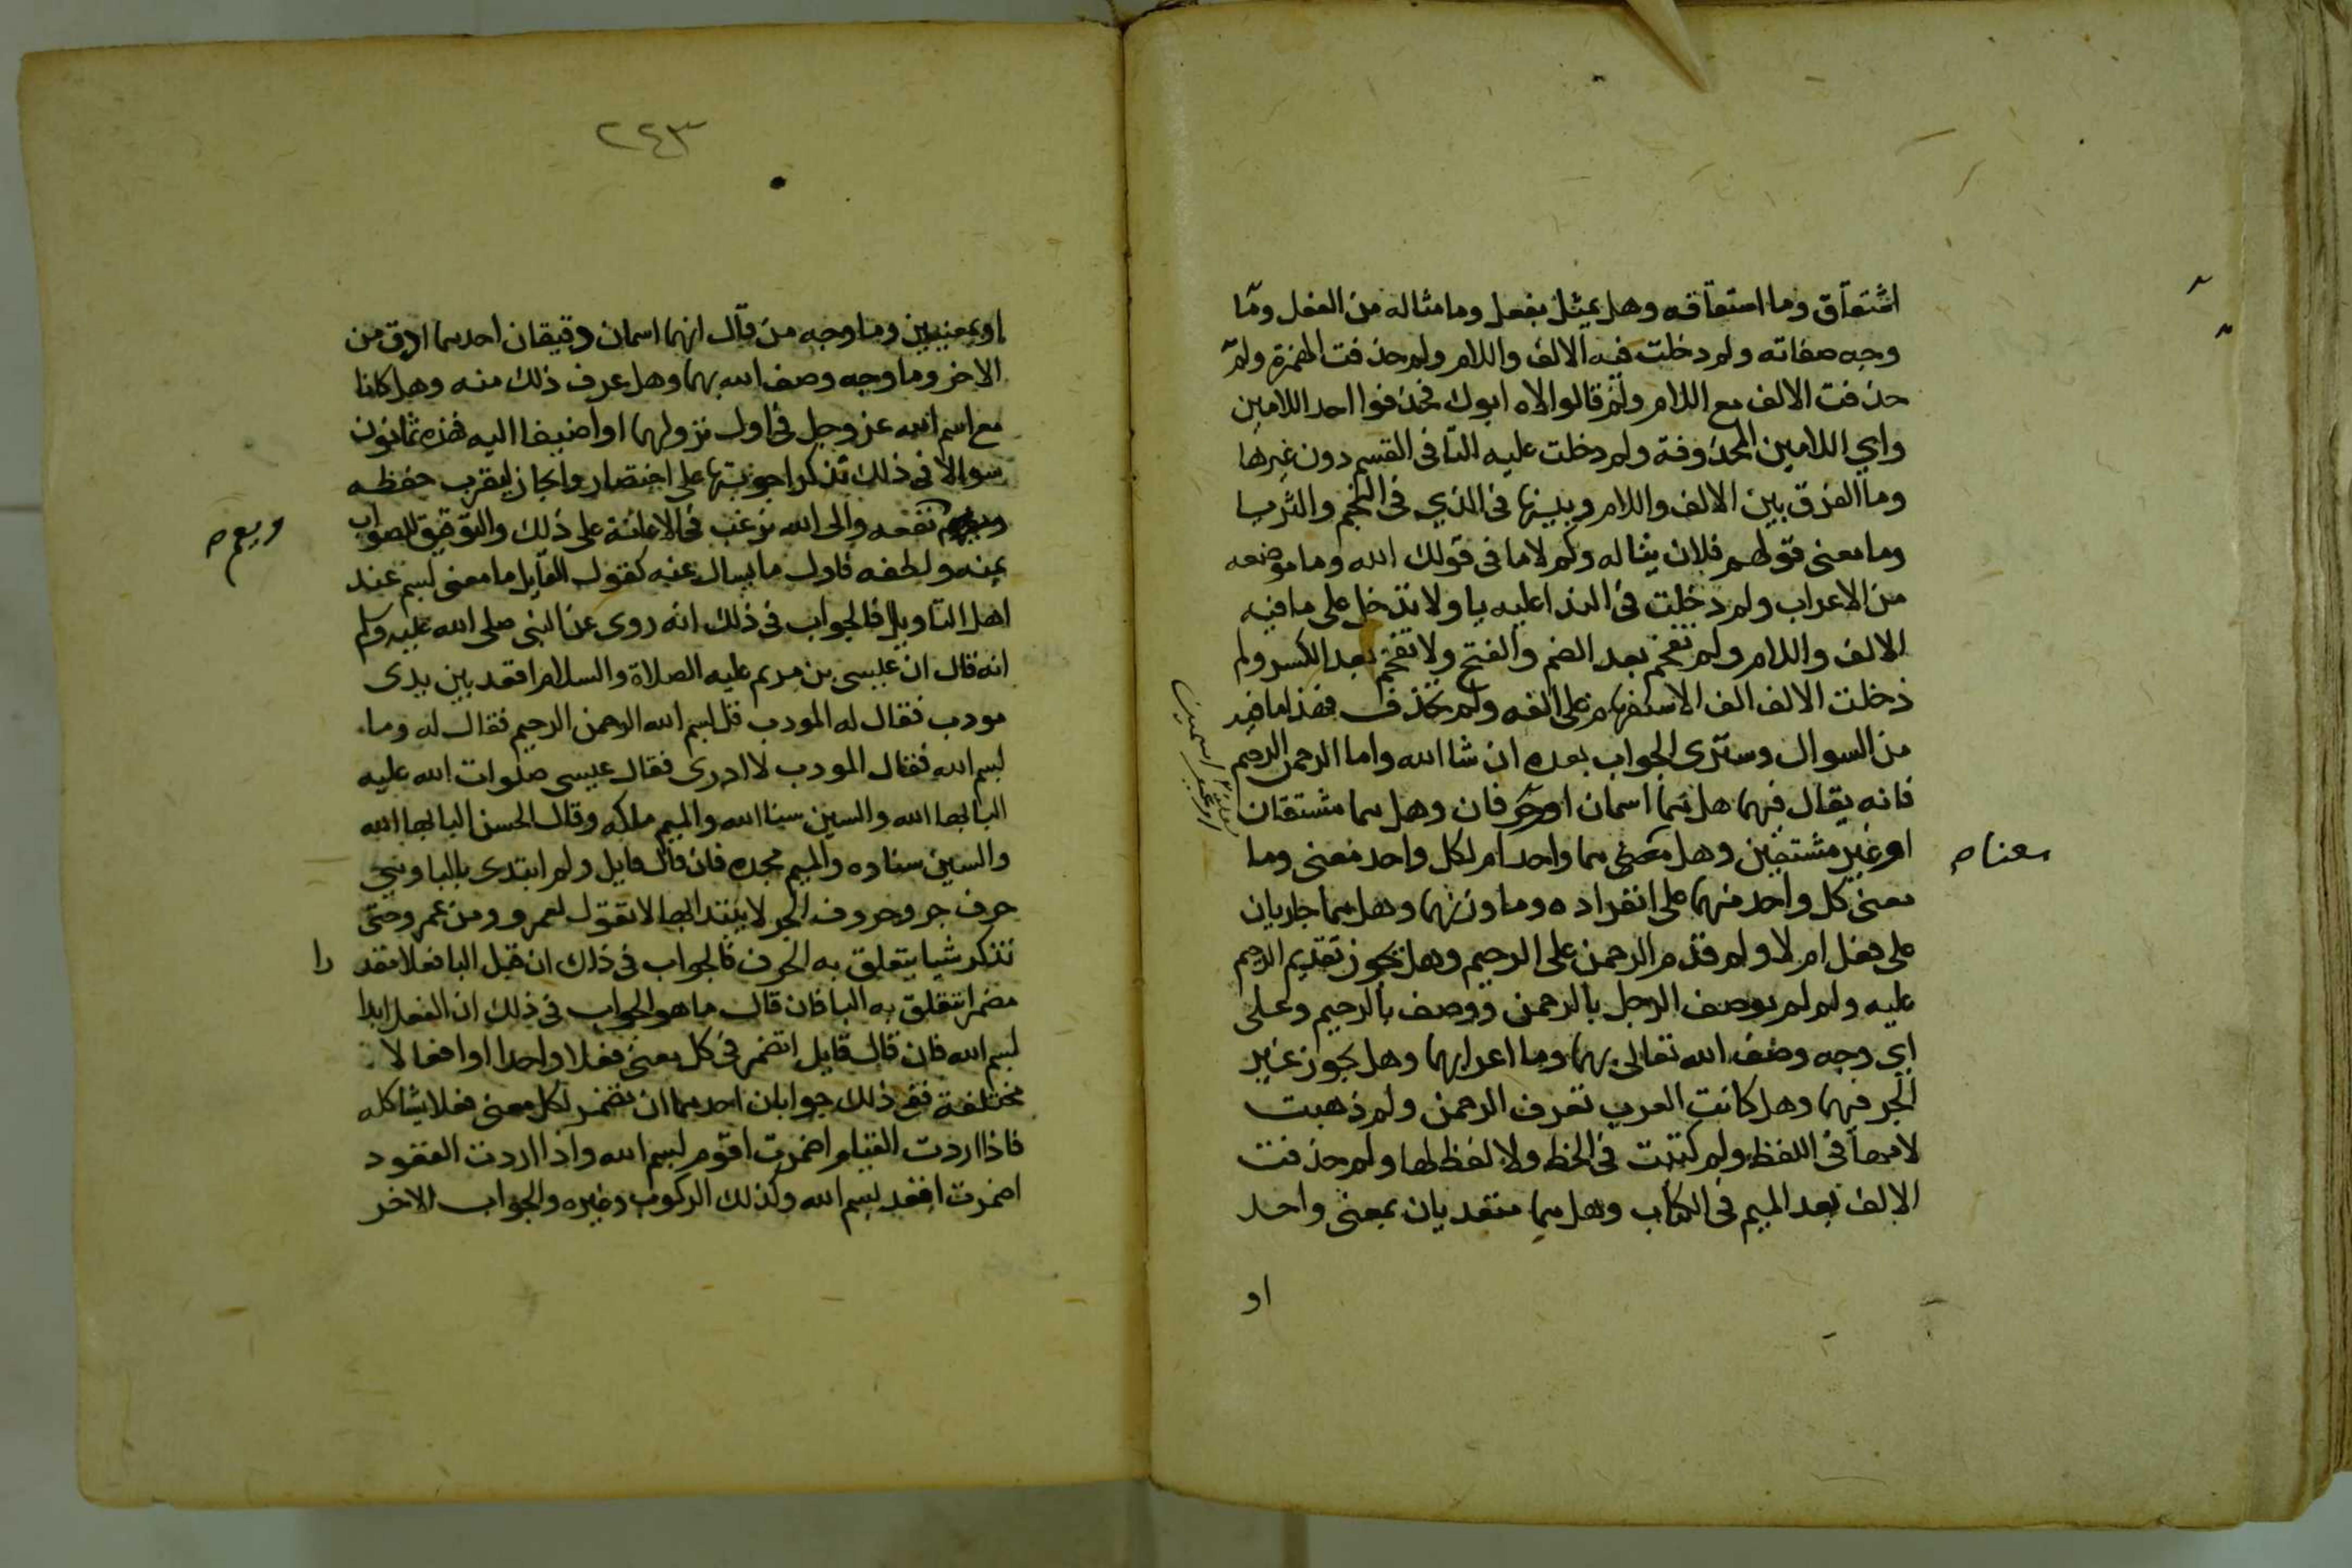 اشتقاق وما اشتقاقه وهل يمثل بفعل وما مثاله من الفعل وما
وجه صفاته ولم دخلت فيه الالف واللام ولم حذفت الهمزة ولم
حذفت الالف مع اللام ولم قالوا لاه ابوك فحذفوا احد اللامين
واي اللامين المحذوفة ولم دخلت عليه التا فى القسم دون غيرها
وما الفرق بين الالف واللام وبينها فى الذي فى النجم والثريا
وما معنى قولهم فلان يتاله وكم لاما فى قولك الله وما موضعه
من الاعراب ولم دخلت فى الندا عليه يا ولا تدخل على ما فيه
الالف واللام ولم تفخم بعد الضم والفتح ولا تفخم بعد الكسر ولم
دخلت الالف الف الاستفهام على الفه ولم تحذف فهذا ما فيه
من السوال وسترى الجواب بعده ان شا الله واما الرحمن الرحيم
فانه يقال فيهما هل هما اسمان او حرفان وهل هما مشتقان
او غير مشتقين وهل معنى هما واحد ام لكل واحد معنى وما
معناه
معنى كل واحد منهما على انفراده وما وزنهما وهل هما جاريان
على فعل ام لا ولم قدم الرحمن على الرحيم وهل يجوز تقديم الرحيم
عليه ولم لم يوصف الرجل بالرحمن ووصف بالرحيم وعلى
اى وجه وصف الله تعالى بهما وما اعرابهما وهل يجوز غير
الجر فيهما وهل كانت العرب تعرف الرحمن ولم ذهبت
لامها فى اللفظ ولم كتبت فى الخط ولا لفظ لها ولم حذفت
الالف بعد الميم فى الكتاب وهل هما متعديان بمعنى واحد
او
٢٤٣
او بمعنيين وما وجه من قال انهما اسمان رقيقان احدهما ارق من
الاخر وما وجه وصف الله بهما وهل عرف ذلك منه وهل كانا
مع اسم الله عز وجل فى اول نزولهما او اضيفا اليه فهذه ثمانون
سوالا فى ذلك تذكر اجوبتها على اختصار وايجاز ليقرب حفظه
نفعه والى الله نرغب فى الاعانة على ذلك والتوفيق للصواب
ويعم
بمنه ولطفه فاول ما يسال عنه كقول القايل ما معنى بسم عند
اهل التاويل فالجواب فى ذلك انه روى عن النبى صلى الله عليه وسلم
انه قال ان عيسى بن مريم عليه الصلاة والسلام اقعد بين يدى
مودب فقال له المودب قل بسم الله الرحمن الرحيم فقال له وما
بسم الله فقال المودب لا ادرى فقال عيسى صلوات الله عليه
البا بها الله والسين سنا الله والميم ملكه وقال الحسن البا بها الله
والسين سناوه والميم مجده فان قال قايل ولم ابتدى بالبا وهى
حرف جر وحروف الجر لا يبتدا بها لا تقول لعمرو ومن عمرو حتى
تذكر شيا يتعلق به الحرف فالجواب فى ذلك ان قبل البا فعلا مقد
را
مضمرا تتعلق به البا فان قال ما هو الجواب فى ذلك ان الفعل ابدا
بسم الله فان قال قايل اتضمر فى كل معنى فعلا واحدا او افعالا
مختلفة ففى ذلك جوابان احدهما ان تضمر لكل معنى فعلا يشاكله
فاذا اردت القيام اضمرت اقوم بسم الله واذا اردت القعود
اضمرت اقعد بسم الله وكذلك الركوب وغيره والجواب الاخر